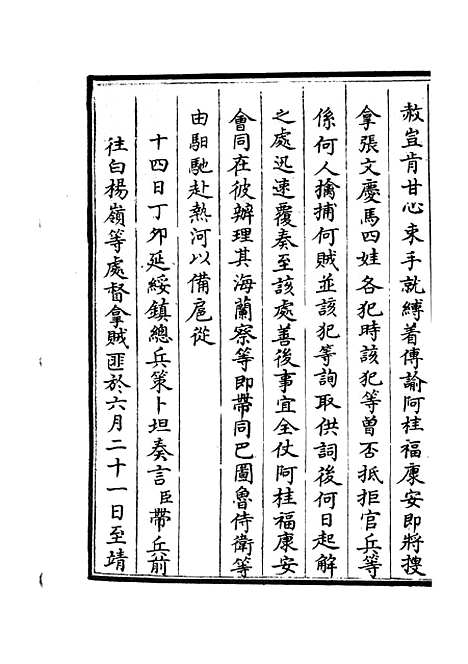 赦豈肯甘心束手就縛着傳諭阿桂福康安即將搜
拿張文慶馬四娃各犯時該犯等曾否抵拒官兵等
係何人擒捕何賊並該犯等詢取供詞後何日起解
之處迅速覆奏至該處善後事宜全仗阿桂福康安
會同在彼辦理其海蘭察等即帶同巴圖魯侍衛等
由馹馳赴熱河以備扈從
十四日丁卯延綏鎮總兵策卜坦奏言臣帶兵前
往白楊嶺等處督拿賊匪於六月二十一日至靖